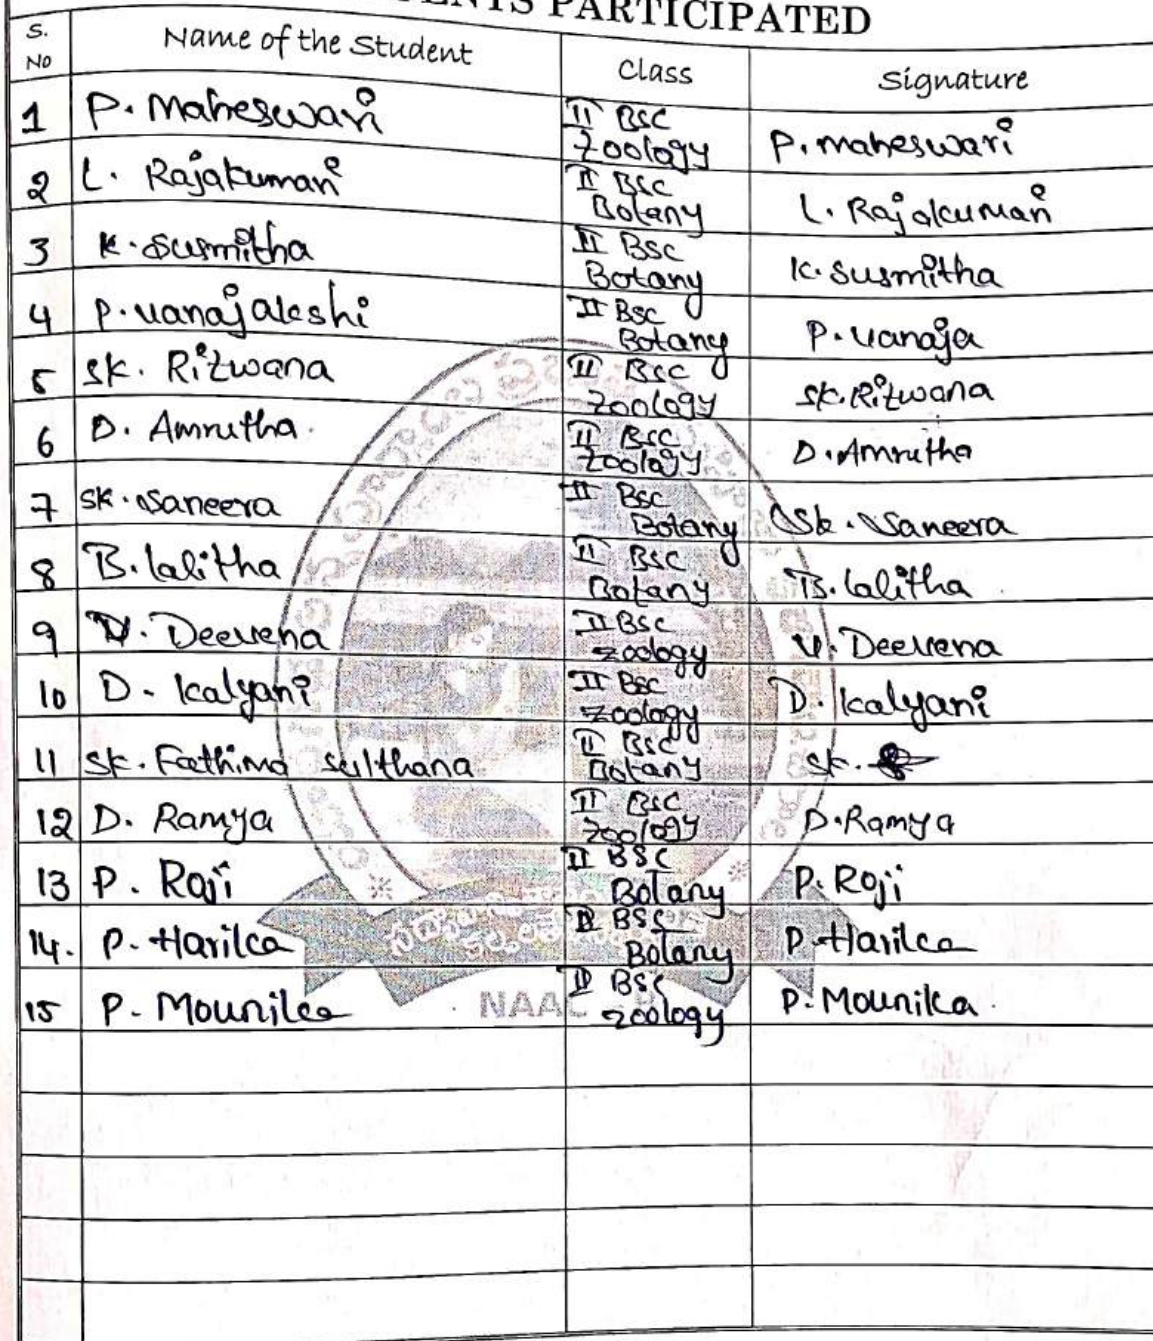 PARTICIPATED
S. No Name of the Student Class Signature
1 P. Maheswari II BSC Zoology P. maheswari
2 L. Rajakumari II BSC Botany L. Rajakumari
3 K. Susmitha II BSC Botany K. Susmitha
4 P. vanajakshi II BSC Botany P. vanaja
5 SK. Rizwana II BSC Zoology SK. Rizwana
6 D. Amrutha II BSC Zoology D. Amrutha
7 SK. Saneera II BSC Botany Sk. Saneera
8 B. lalitha II BSC Botany B. lalitha
9 V. Deevena II BSC Zoology V. Deevena
10 D. Kalyani II BSC Zoology D. Kalyani
11 SK. Fathima sulthana II BSC Botany SK.
12 D. Ramya II BSC Zoology D. Ramya
13 P. Raji II BSC Botany P. Raji
14. P. Harika II BSC Botany P. Harika
15 P. Mounika II BSC Zoology P. Mounika
NAAC